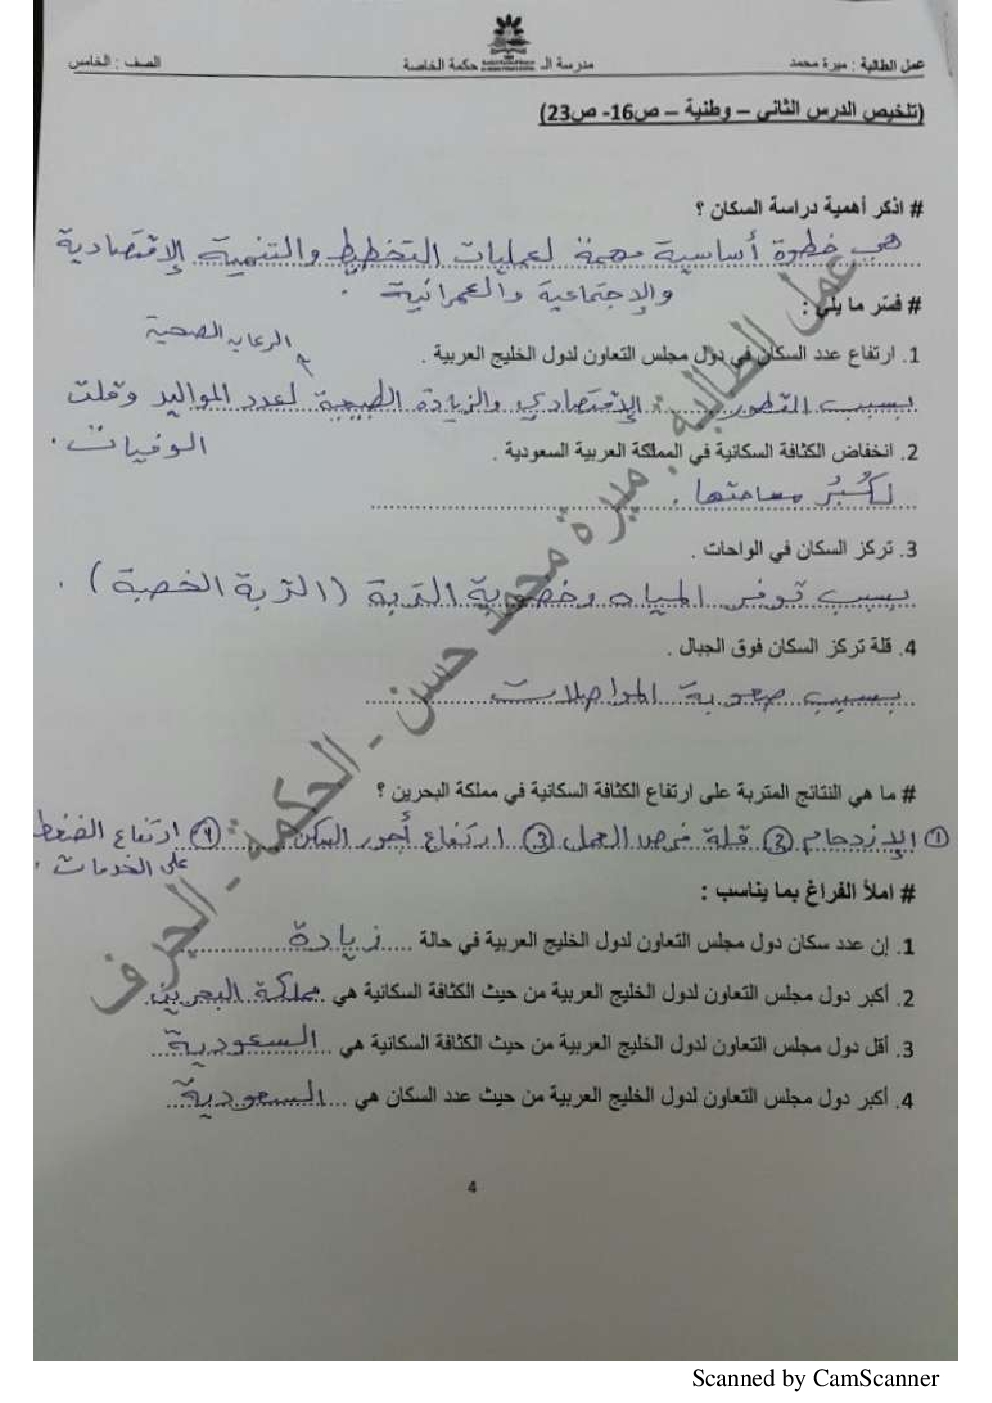 عمل الطالبة : ميرة محمد
مدرسة الـ حكمة الخاصة
الصف : الخامس
(تلخيص الدرس الثاني – وطنية – ص16- ص23)
# اذكر أهمية دراسة السكان ؟
هي خطوة أساسية مهمة لعمليات التخطيط والتنمية الإقتصادية
والإجتماعية والعمرانية .
# فسّر ما يلي :
الرعاية الصحية
1. ارتفاع عدد السكان في دول مجلس التعاون لدول الخليج العربية .
بسبب التطور الإقتصادي والزيادة الطبيعية لعدد المواليد وقلت
الوفيات .
2. انخفاض الكثافة السكانية في المملكة العربية السعودية .
لكُبُر مساحتها .
3. تركز السكان في الواحات .
بسبب توفر المياه وخصوبة التربة (التربة الخصبة) .
4. قلة تركز السكان فوق الجبال .
بسبب صعوبة المواصلات
# ما هي النتائج المتربة على ارتفاع الكثافة السكانية في مملكة البحرين ؟
① الإزدحام ② قلة فرص العمل ③ ارتفاع أجور السكن ④ ارتفاع الضغط
على الخدمات .
# املأ الفراغ بما يناسب :
1. إن عدد سكان دول مجلس التعاون لدول الخليج العربية في حالة زيادة
2. أكبر دول مجلس التعاون لدول الخليج العربية من حيث الكثافة السكانية هي مملكة البحرين
3. أقل دول مجلس التعاون لدول الخليج العربية من حيث الكثافة السكانية هي السعودية
4. أكبر دول مجلس التعاون لدول الخليج العربية من حيث عدد السكان هي السعودية
عمل الطالبة : ميرة محمد حسن - الحكمة - الحرف
4
Scanned by CamScanner